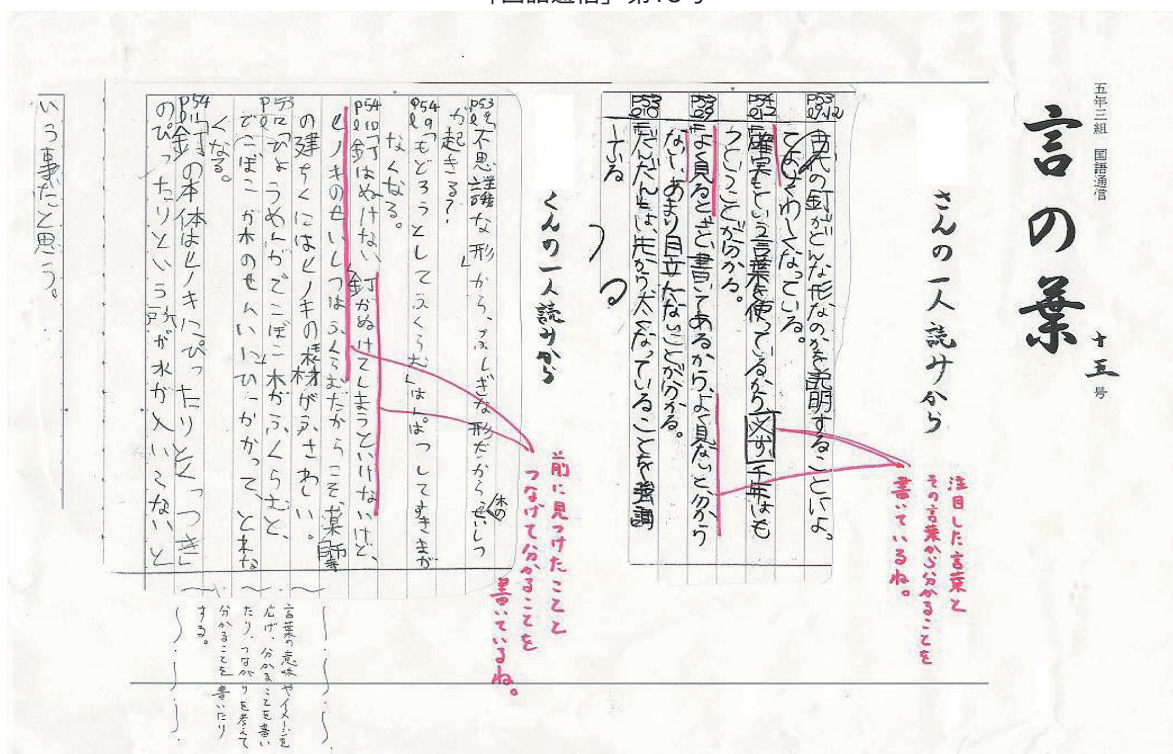 「国語通信」第15号
五年三組 国語通信
言の葉
十五号
さんの一人読みから
古代の釘がどんな形なのかを説明することによっ
てよりくわしくなっている。
確実もという言葉を使っているから必ず千年はも
つということが分かる。
よく見るとと、書いてあるから、よく見ないと、分から
ないし、あまり目立たないことが分かる。
だんだんは、先から太くなっていることを強調
している
注目した言葉と
その言葉から分かることを
書いているね。
くんの一人読みから
P53
「不思議な形から、ふしぎな形だから木のせいしつ
が起きる?」
P54
l9「もどろうとしてふくらむ」はんぱつしてすきまが
なくなる。
P54
l10「釘はぬけない」釘がぬけてしまうといけないけど、
ヒノキのせいしつはふくらむだからこそ、薬師寺
の建ちくにはヒノキの木材がふさわしい。
P53
l12「ひょうめんがでこぼこ」木がふくらむと、
でこぼこが木のせんいにひっかかって、とれな
くなる。
P54
「釘の本体はヒノキにぴったりとくっつき」
のぴったりという所が水が入いらないと
いう事だと思う。
前に見つけたことと
つなげて分かることを
書いているね。
言葉の意味やイメージを
広げ、分かることを書い
たり、つながりを考えて
分かることを書いたり
する。